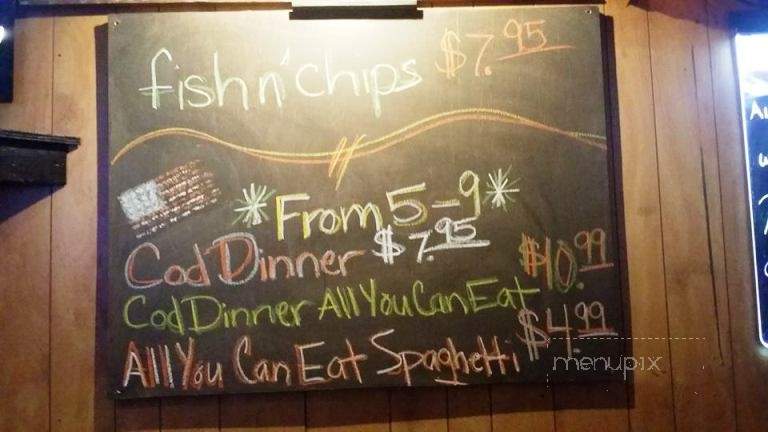 fish n' chips $7.95
*From 5-9*
Cod Dinner $7.95
Cod Dinner All You Can Eat $10.99
All You Can Eat Spaghetti $4.99
menupix